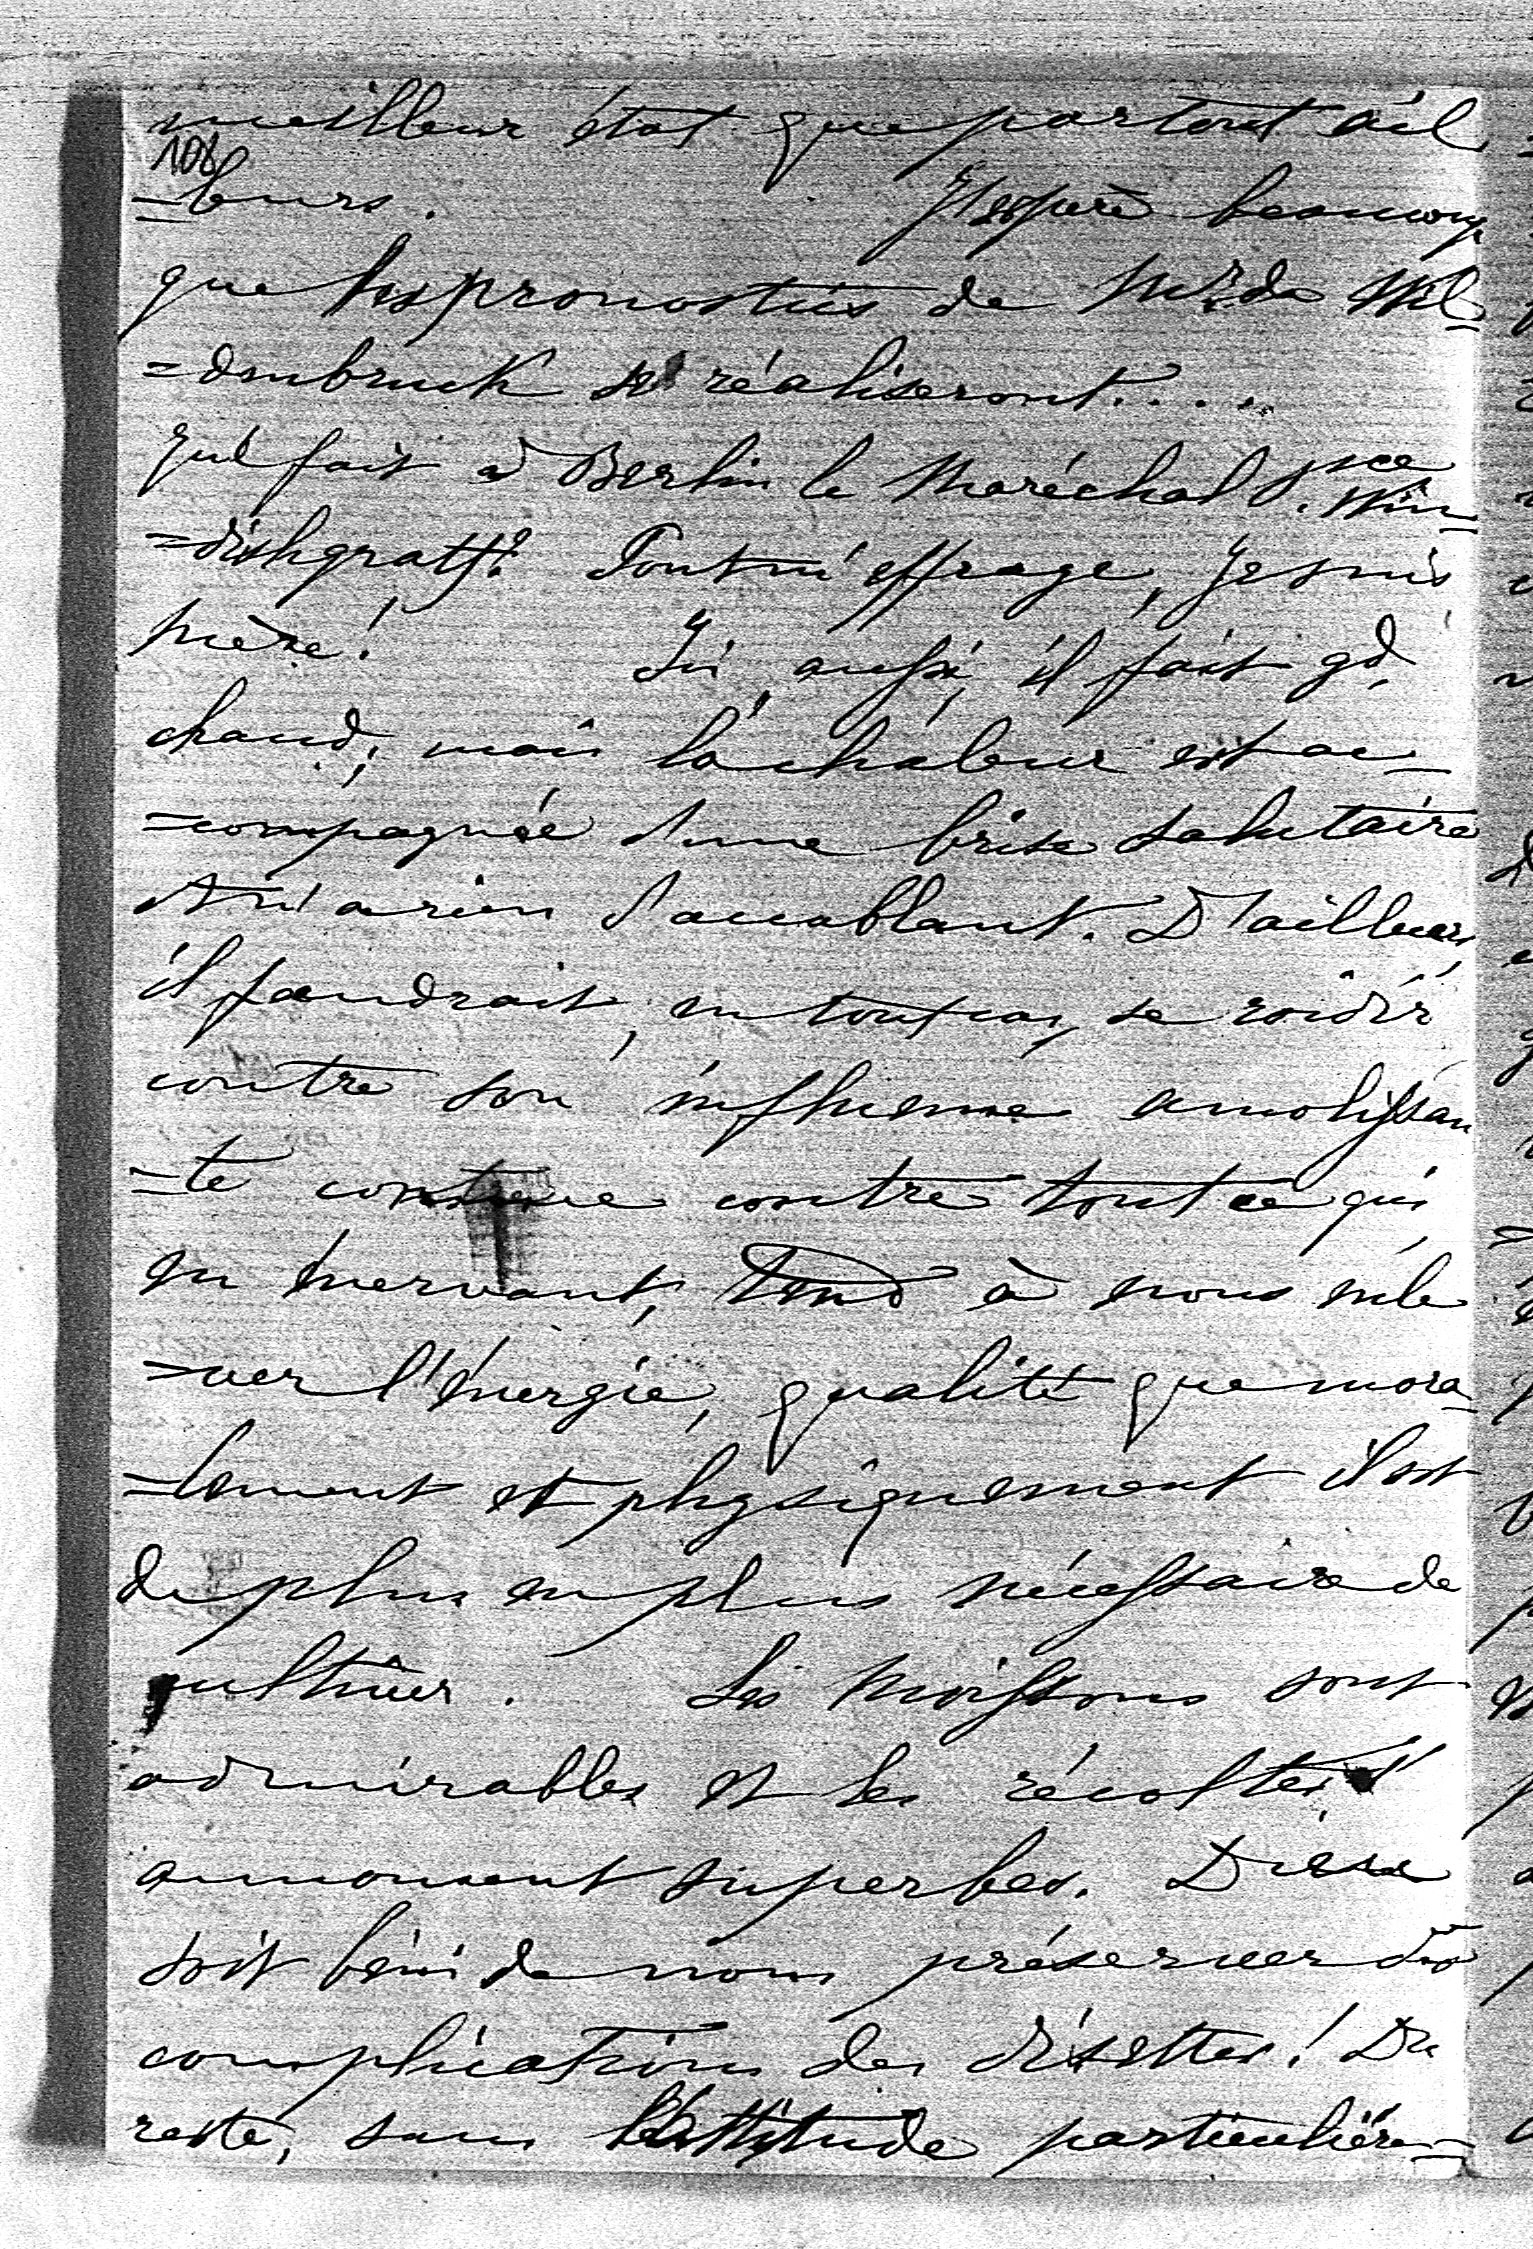 meilleur état que partout ail
108
=leurs. J'espère beaucoup
que les pronostics de Mr. de Wil
=denbruck se réaliseront....
Que fait à Berlin le Maréchal Pce. Win
=dishgratz? Tout m'effraye, je suis
mère! Ici, aussi, il fait gd.
chaud, mais la chaleur est ac
=compagnée d'une brise salutaire
et n'a rien d'accablant. D'ailleurs,
il faudrait, en tout cas, se roidir
contre son influence amolissan
=te comme contre tout ce qui,
en énervant, tend à nous enle
=ver l'énergie, qualité que mora
=lement et physiquement il est
de plus en plus nécessaire de
cultiver. Les moissons sont
admirables et les récoltes s'
annoncent superbes. Dieu
soit béni de nous préserver des
complications des disettes! Du
reste, sans l'attitude particulière=